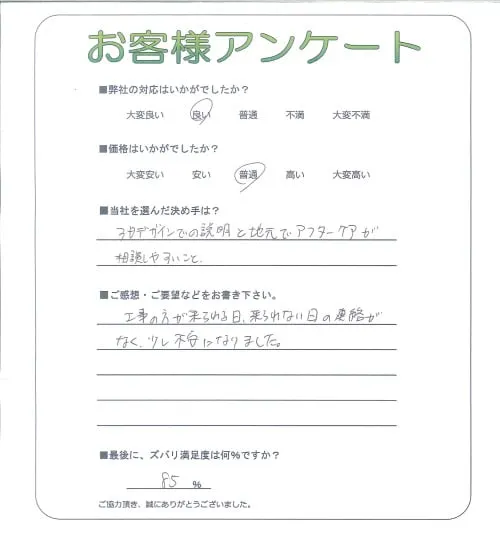 お客様アンケート
■弊社の対応はいかがでしたか？
大変良い 良い 普通 不満 大変不満
■価格はいかがでしたか？
大変安い 安い 普通 高い 大変高い
■当社を選んだ決め手は？
デザインでの説明と地元でアフターケアが
相談しやすいこと。
■ご感想・ご要望などをお書き下さい。
工事の方が来られる日、来られない日の連絡が
なく、少し不安になりました。
■最後に、ズバリ満足度は何%ですか？
85 %
ご協力頂き、誠にありがとうございました。